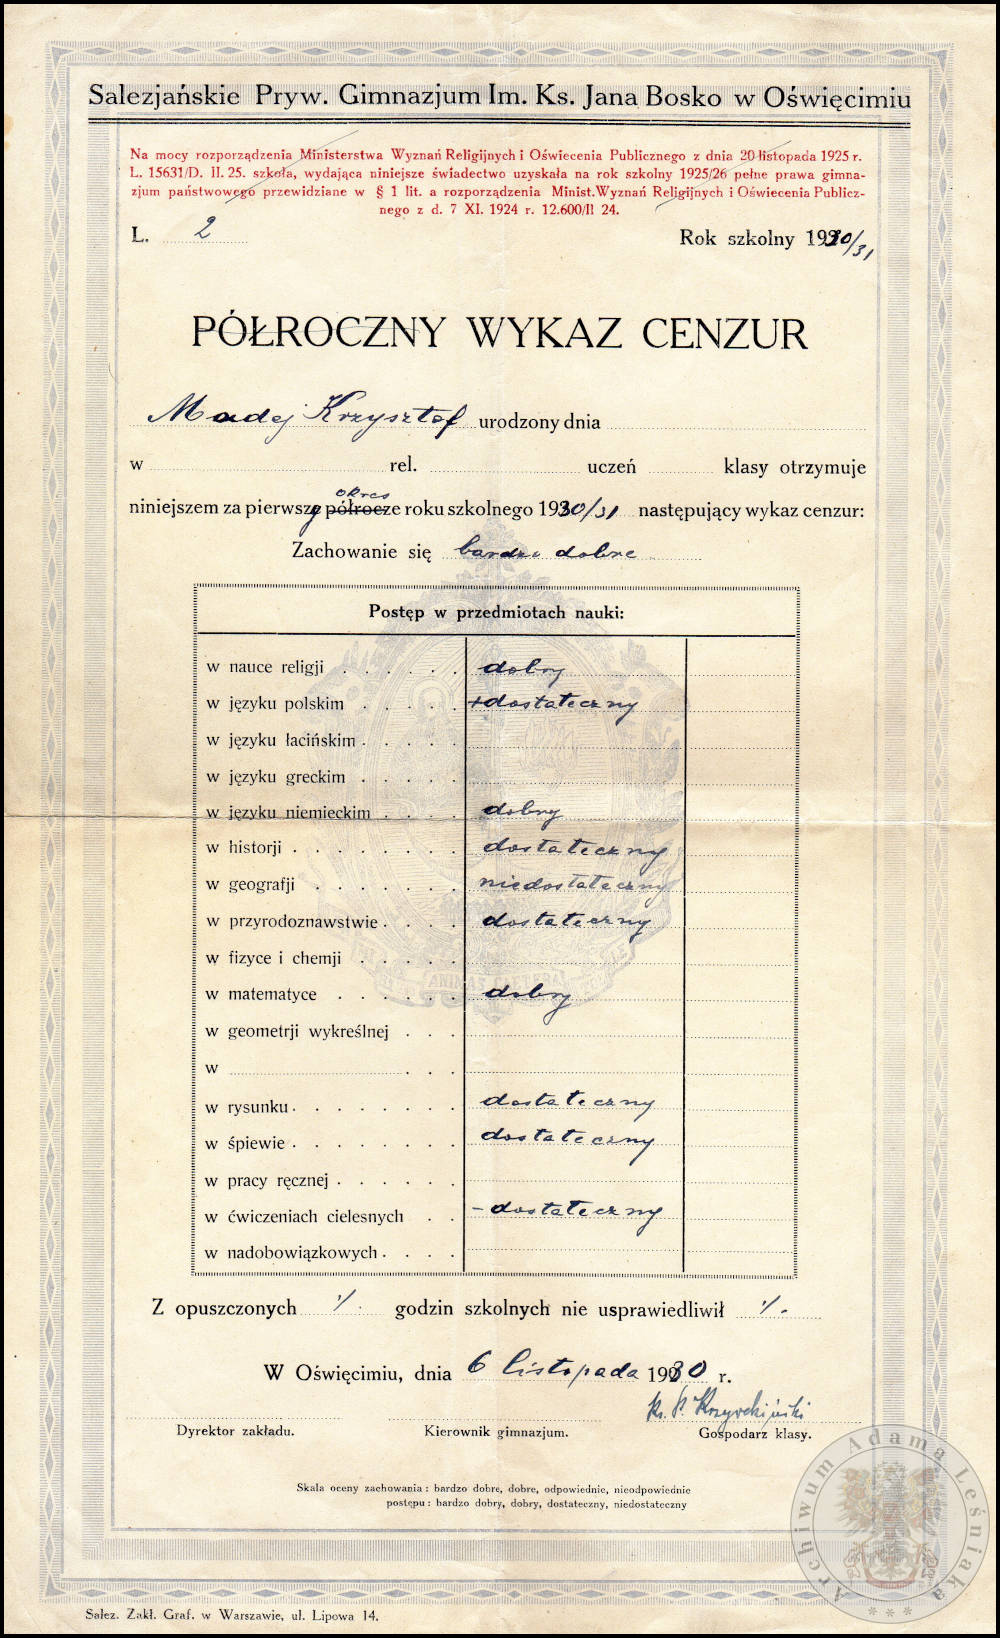 Salezjańskie Pryw. Gimnazjum Im. Ks. Jana Bosko w Oświęcimiu
Na mocy rozporządzenia Ministerstwa Wyznań Religijnych i Oświecenia Publicznego z dnia 20 listopada 1925 r.
L. 15631/D. II. 25. szkoła, wydająca niniejsze świadectwo uzyskała na rok szkolny 1925/26 pełne prawa gimna-
zjum państwowego przewidziane w § 1 lit. a rozporządzenia Minist. Wyznań Religijnych i Oświecenia Publicz-
nego z d. 7 XI. 1924 r. 12.600/II 24.
L. 2 Rok szkolny 1930/31
PÓŁROCZNY WYKAZ CENZUR
Madej Krzysztof urodzony dnia
w rel. uczeń klasy otrzymuje
okres
niniejszem za pierwszy półrocze roku szkolnego 1930/31 następujący wykaz cenzur:
Zachowanie się bardzo dobre
Postęp w przedmiotach nauki:
w nauce religji dobry
w języku polskim +dostateczny
w języku łacińskim
w języku greckim
w języku niemieckim dobry
w historji dostateczny
w geografji niedostateczny
w przyrodoznawstwie dostateczny
w fizyce i chemji
w matematyce dobry
w geometrji wykreślnej
w
w rysunku dostateczny
w śpiewie dostateczny
w pracy ręcznej
w ćwiczeniach cielesnych -dostateczny
w nadobowiązkowych
Z opuszczonych ·/. godzin szkolnych nie usprawiedliwił ·/.
W Oświęcimiu, dnia 6 listopada 1930 r.
Ks. P.
Dyrektor zakładu. Kierownik gimnazjum. Gospodarz klasy.
Skala oceny zachowania: bardzo dobre, dobre, odpowiednie, nieodpowiednie
postępu: bardzo dobry, dobry, dostateczny, niedostateczny
Salez. Zakł. Graf. w Warszawie, ul. Lipowa 14.
Archiwum Adama Leśniaka